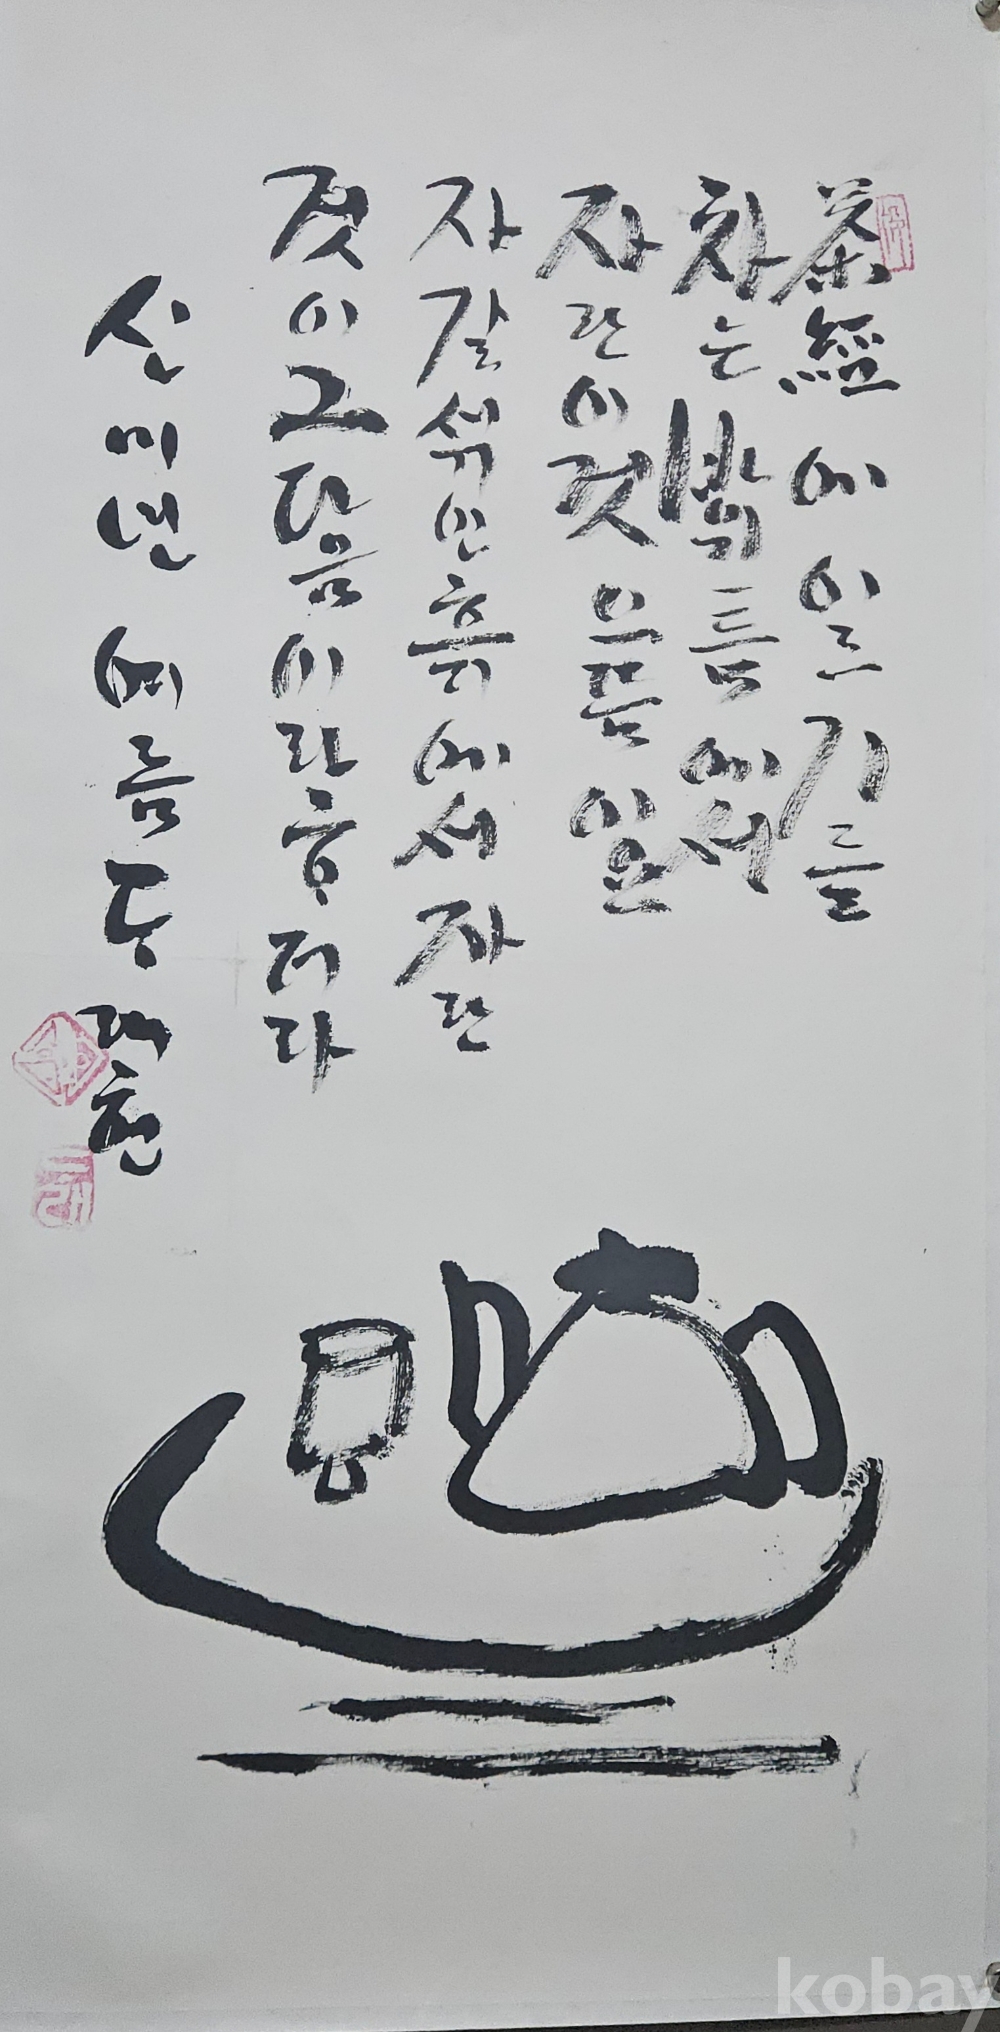 茶經에 이르기를
차는 바위틈에서
자란 이것 으뜸이요
자갈 섞인 흙에서 자란
것이 그 다음이라 ᄒᆞ더라
신미년 여름
kobay